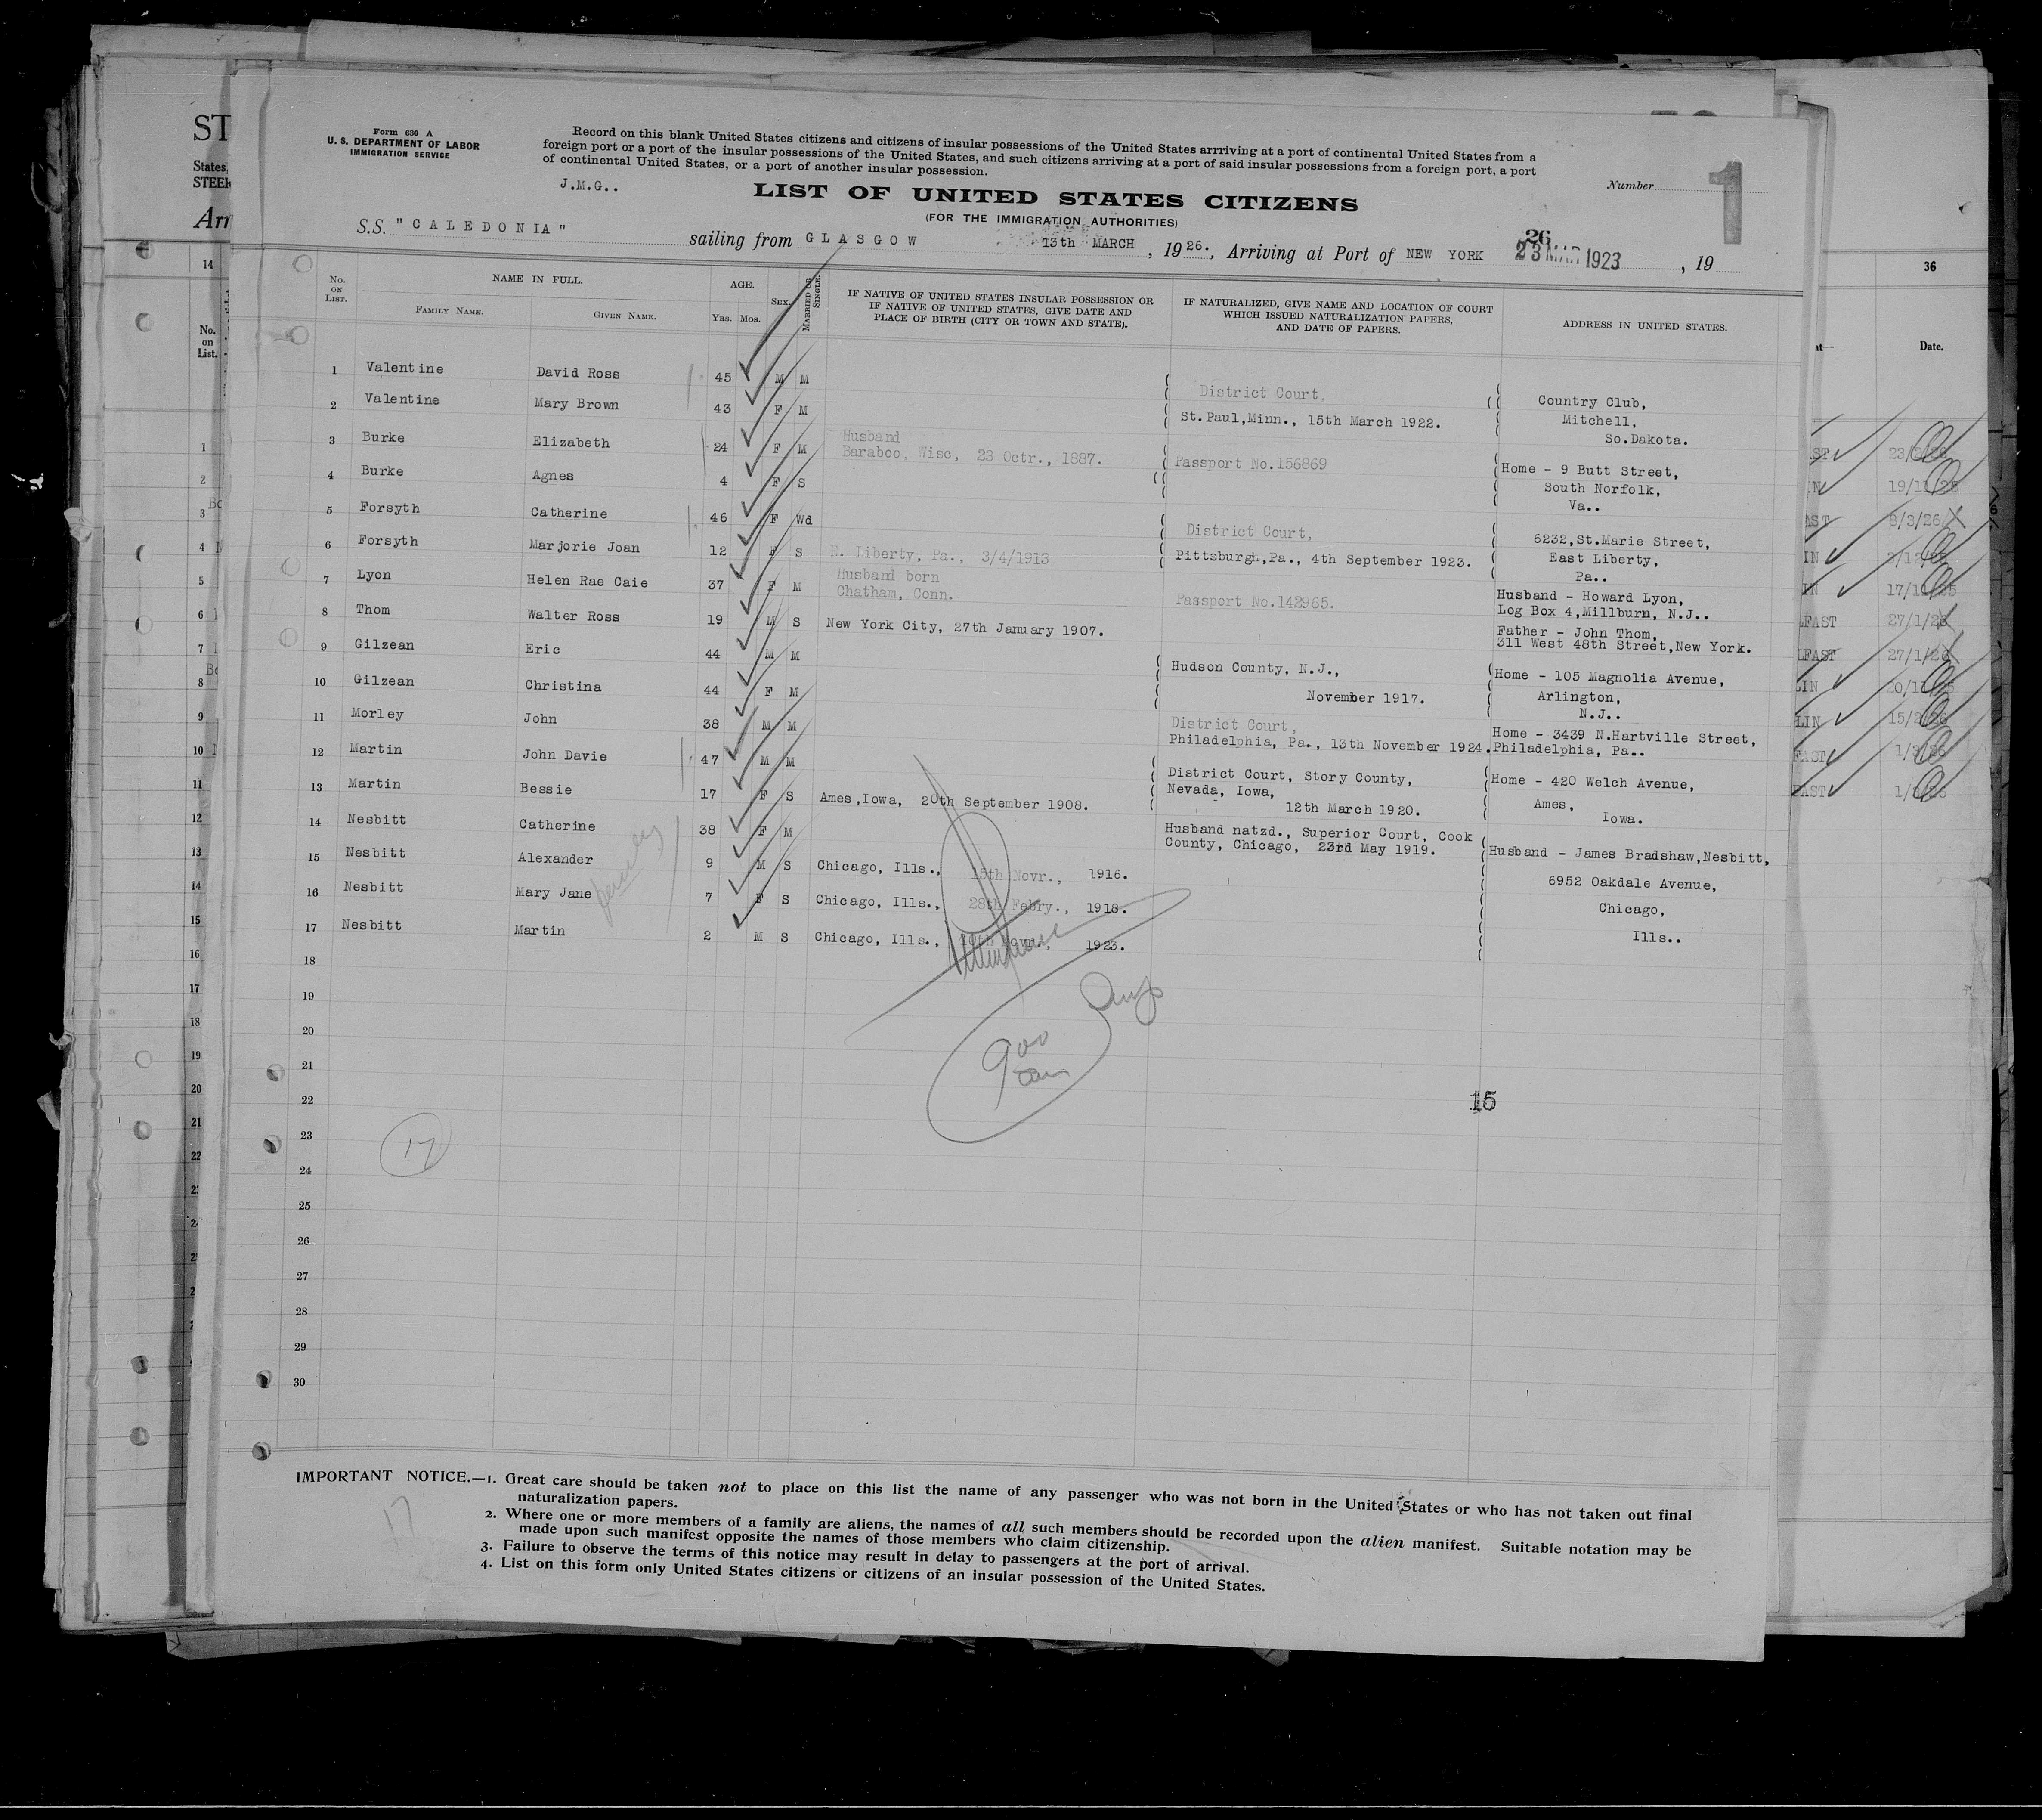 Form 630 A
U. S. DEPARTMENT OF LABOR
IMMIGRATION SERVICE
Record on this blank United States citizens and citizens of insular possessions of the United States arrriving at a port of continental United States from a
foreign port or a port of the insular possessions of the United States, and such citizens arriving at a port of said insular possessions from a foreign port, a port
of continental United States, or a port of another insular possession.
J.M.G..
Number
1
LIST OF UNITED STATES CITIZENS
(FOR THE IMMIGRATION AUTHORITIES)
S.S. "CALEDONIA" sailing from GLASGOW 13th MARCH, 1926., Arriving at Port of NEW YORK 23 MAR 1923, 19
26
No. ON LIST. NAME IN FULL. AGE. SEX. MARRIED OR SINGLE. IF NATIVE OF UNITED STATES INSULAR POSSESSION OR IF NATIVE OF UNITED STATES, GIVE DATE AND PLACE OF BIRTH (CITY OR TOWN AND STATE). IF NATURALIZED, GIVE NAME AND LOCATION OF COURT WHICH ISSUED NATURALIZATION PAPERS, AND DATE OF PAPERS. ADDRESS IN UNITED STATES.
FAMILY NAME. GIVEN NAME. Yrs. Mos.
1 Valentine David Ross 45 M M
District Court, Country Club,
2 Valentine Mary Brown 43 F M St.Paul,Minn., 15th March 1922. Mitchell,
So.Dakota.
3 Burke Elizabeth 24 F M Husband
Baraboo, Wisc, 23 Octr., 1887. Passport No.156869 Home - 9 Butt Street,
4 Burke Agnes 4 F S South Norfolk,
Va..
5 Forsyth Catherine 46 F Wd District Court, 6232,St.Marie Street,
6 Forsyth Marjorie Joan 12 F S E. Liberty, Pa., 3/4/1913 Pittsburgh,Pa., 4th September 1923. East Liberty,
Pa..
7 Lyon Helen Rae Caie 37 F M Husband born
Chatham, Conn. Passport No.142965. Husband - Howard Lyon,
Log Box 4,Millburn, N.J..
8 Thom Walter Ross 19 M S New York City, 27th January 1907. Father - John Thom,
311 West 48th Street,New York.
9 Gilzean Eric 44 M M Hudson County, N.J., Home - 105 Magnolia Avenue,
10 Gilzean Christina 44 F M November 1917. Arlington,
N.J..
11 Morley John 38 M M District Court,
Philadelphia, Pa., 13th November 1924. Home - 3439 N.Hartville Street,
Philadelphia, Pa..
12 Martin John Davie 47 M M District Court, Story County, Home - 420 Welch Avenue,
13 Martin Bessie 17 F S Ames,Iowa, 20th September 1908. Nevada, Iowa, Ames,
12th March 1920. Iowa.
14 Nesbitt Catherine 38 F M Husband natzd., Superior Court, Cook
County, Chicago, 23rd May 1919. Husband - James Bradshaw,Nesbitt,
15 Nesbitt Alexander 9 M S Chicago, Ills., 15th Novr., 1916. 6952 Oakdale Avenue,
16 Nesbitt Mary Jane 7 F S Chicago, Ills., 28th Febry., 1918. Chicago,
17 Nesbitt Martin 2 M S Chicago, Ills., 1923. Ills..
18
19
20
21
22
15
23
17
24
25
26
27
28
29
30
IMPORTANT NOTICE.—1. Great care should be taken not to place on this list the name of any passenger who was not born in the United States or who has not taken out final
naturalization papers.
2. Where one or more members of a family are aliens, the names of all such members should be recorded upon the alien manifest. Suitable notation may be
made upon such manifest opposite the names of those members who claim citizenship.
3. Failure to observe the terms of this notice may result in delay to passengers at the port of arrival.
4. List on this form only United States citizens or citizens of an insular possession of the United States.
17